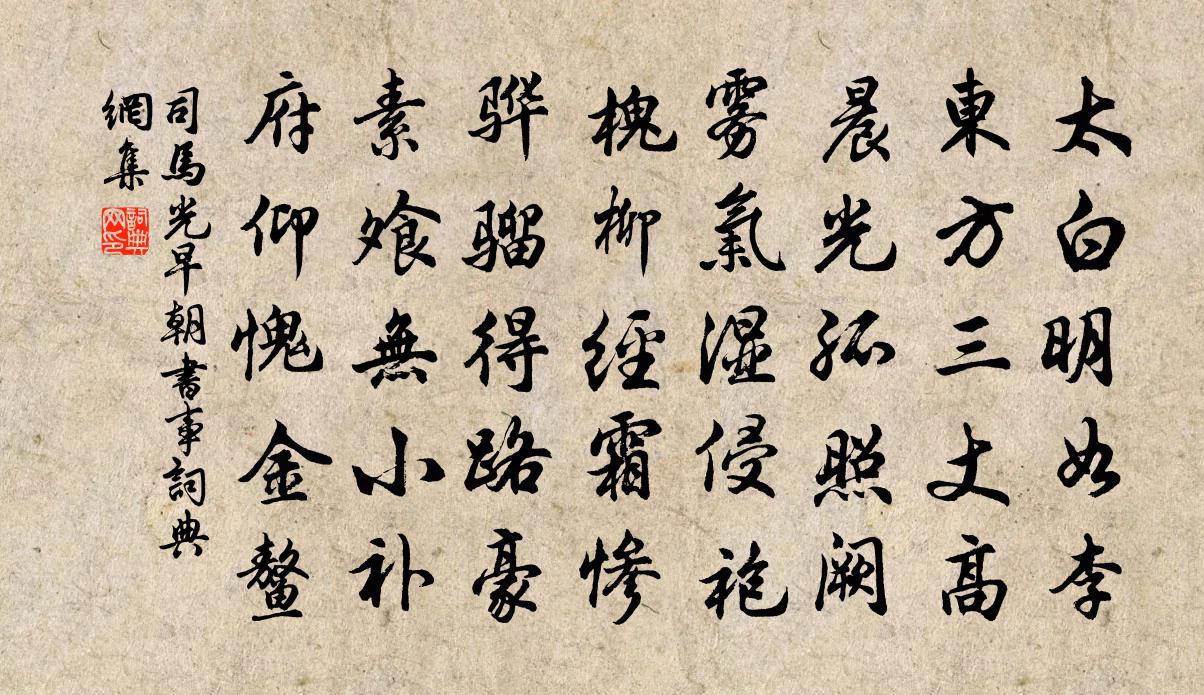 太白明如李
東方三丈高
晨光孤照闕
雾氣湿侵袍
槐柳經霜惨
骅骝得路豪
素飱無小补
府仰愧金鳌
司馬光早朝書事詞典
網集
詞典
网印